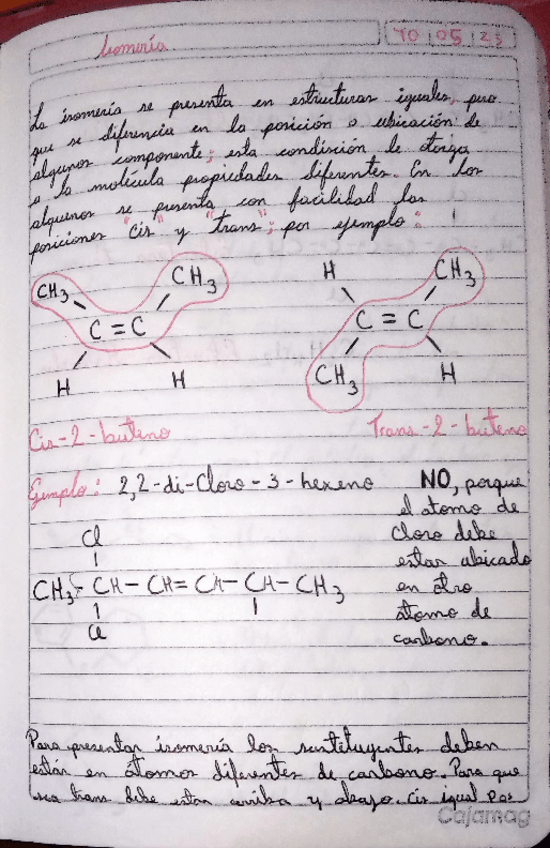 Isomería
10 05 23
La isomería se presenta en estructuras iguales, pero
que se diferencia en la posición o ubicación de
algunos componente; esta condición le otorga
a la molécula propiedades diferentes. En los
alquenos se presenta con facilidad las
posiciones "cis" y "trans"; por ejemplo:
CH3 CH3 H CH3
C = C C = C
H H CH3 H
Cis-2-buteno Trans-2-buteno
Ejemplo: 2,2-di-Cloro-3-hexeno NO, porque
el atomo de
Cl cloro debe
estar ubicado
CH3 - CH - CH = CH - CH - CH3 en otro
atomo de
Cl carbono.
Para presentar isomería los sustituyentes deben
estár en átomos diferentes de carbono. Para que
sea trans debe estar arriba y abajo. cis igual pos
Cajamag